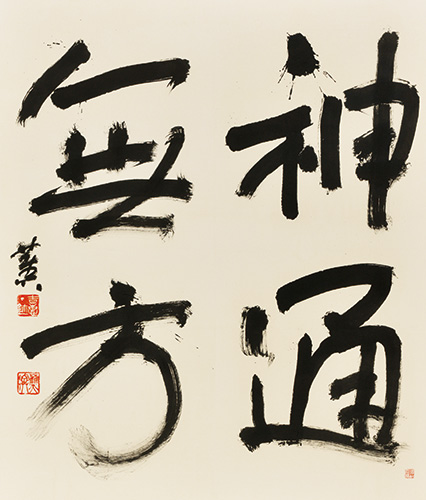 神通
無方